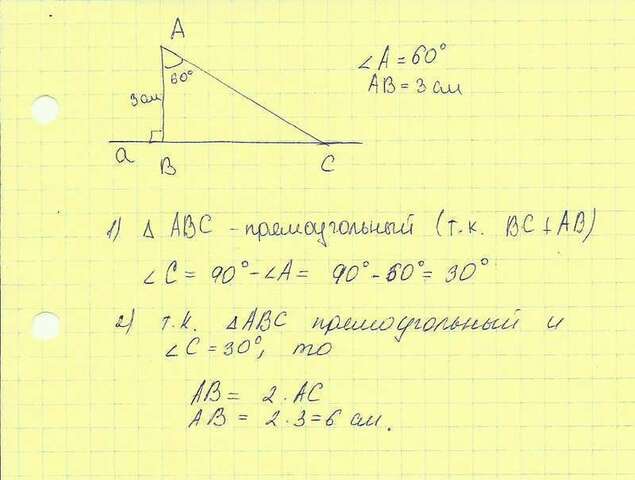 A
60°
3 см
a
B
C
∠A = 60°
AB = 3 см
1) △ ABC - прямоугольный (т.к. BC ⊥ AB)
∠C = 90° - ∠A = 90° - 60° = 30°
2) т.к. △ABC прямоугольный и
∠C = 30°, то
AB = 2 · AC
AB = 2 · 3 = 6 см.